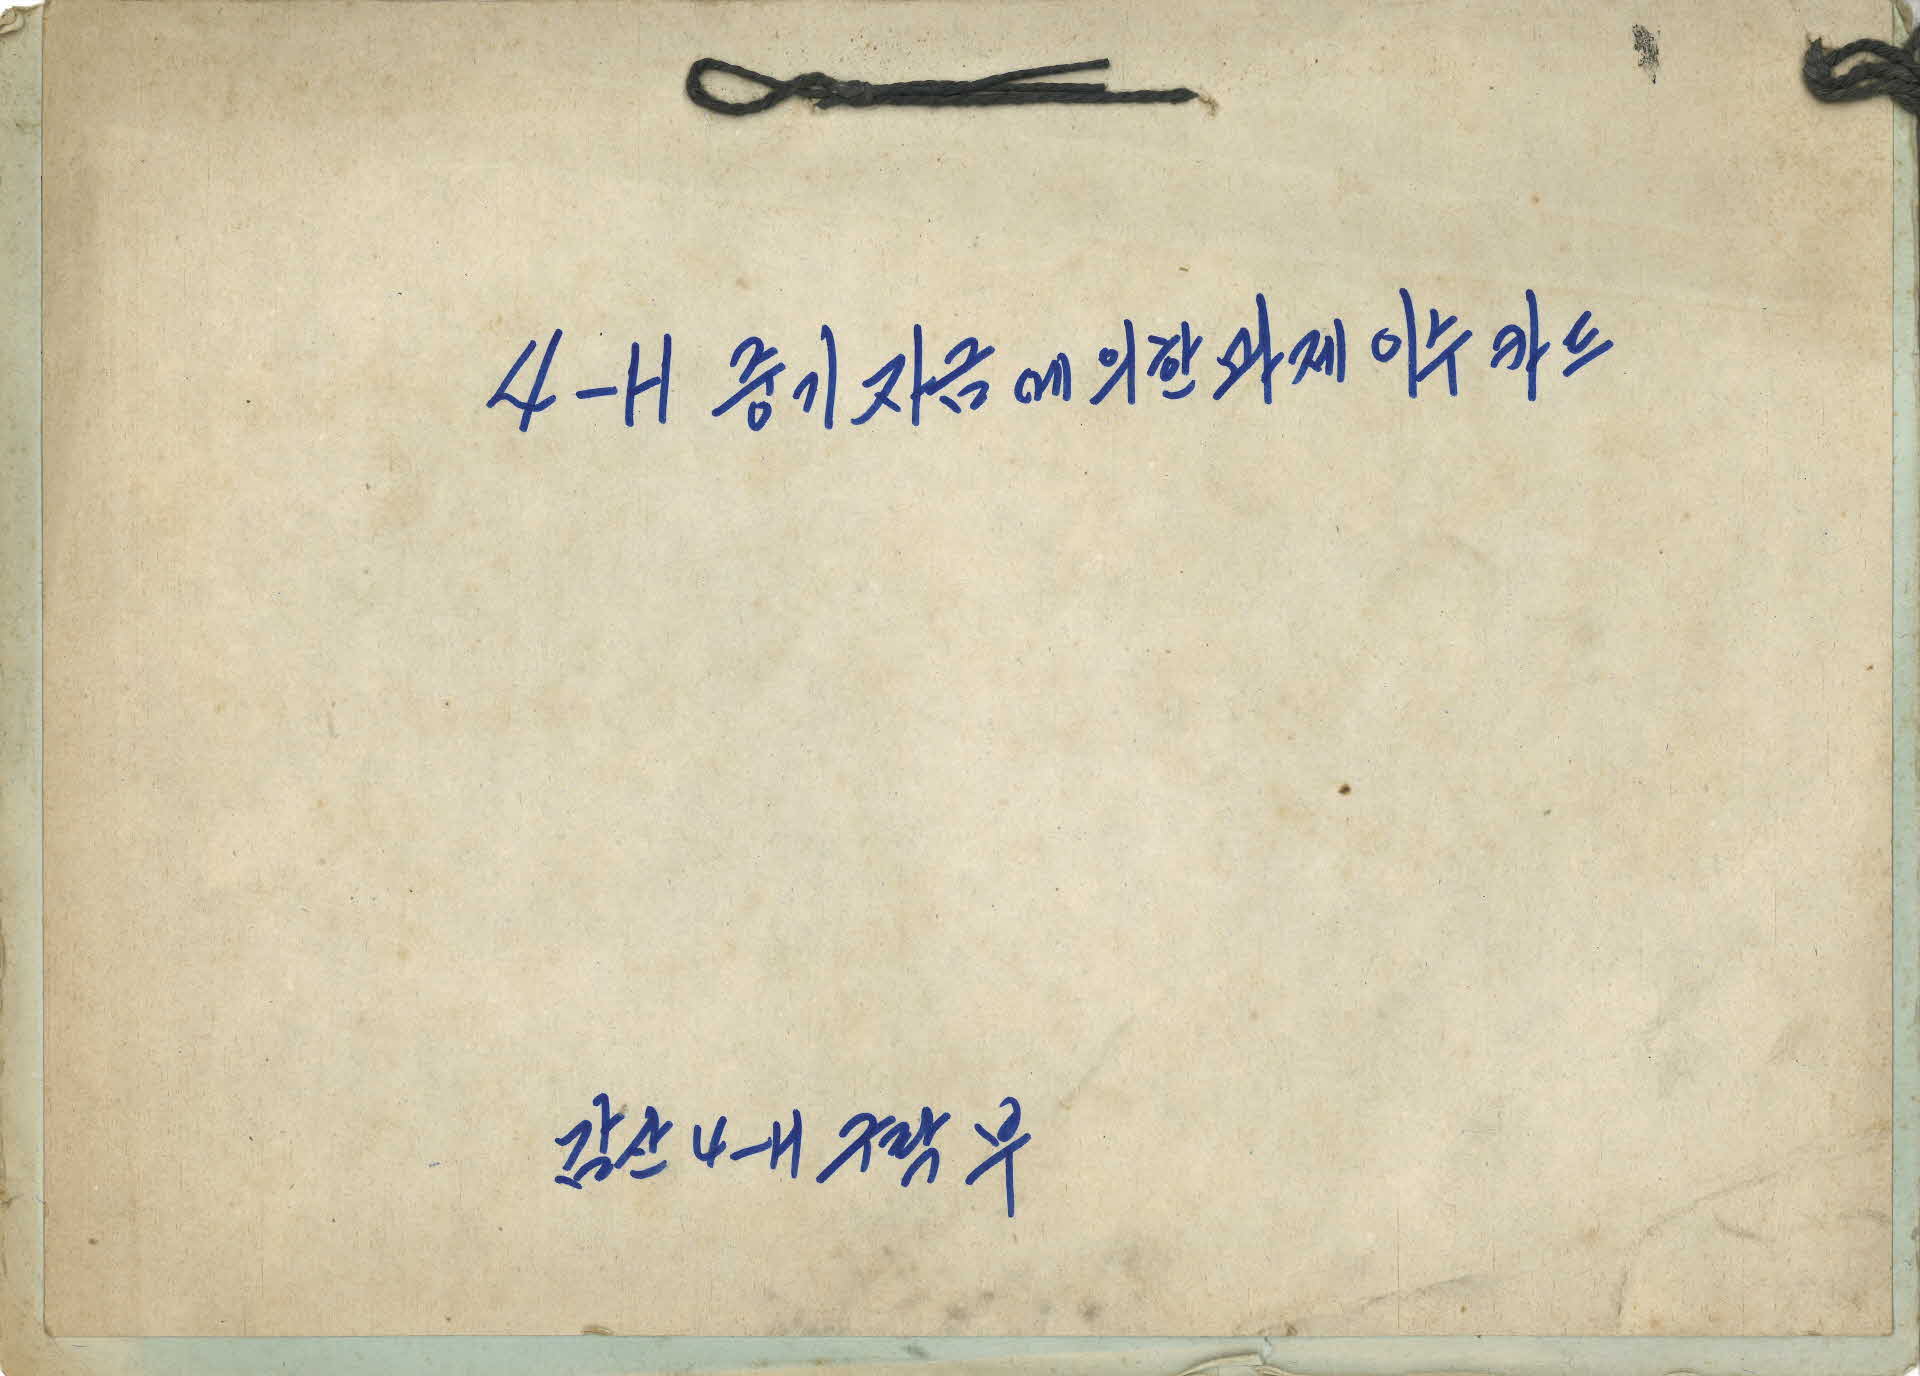 4-H 중기자금에 의한 과제 이수 카드
감산 4-H 구락부